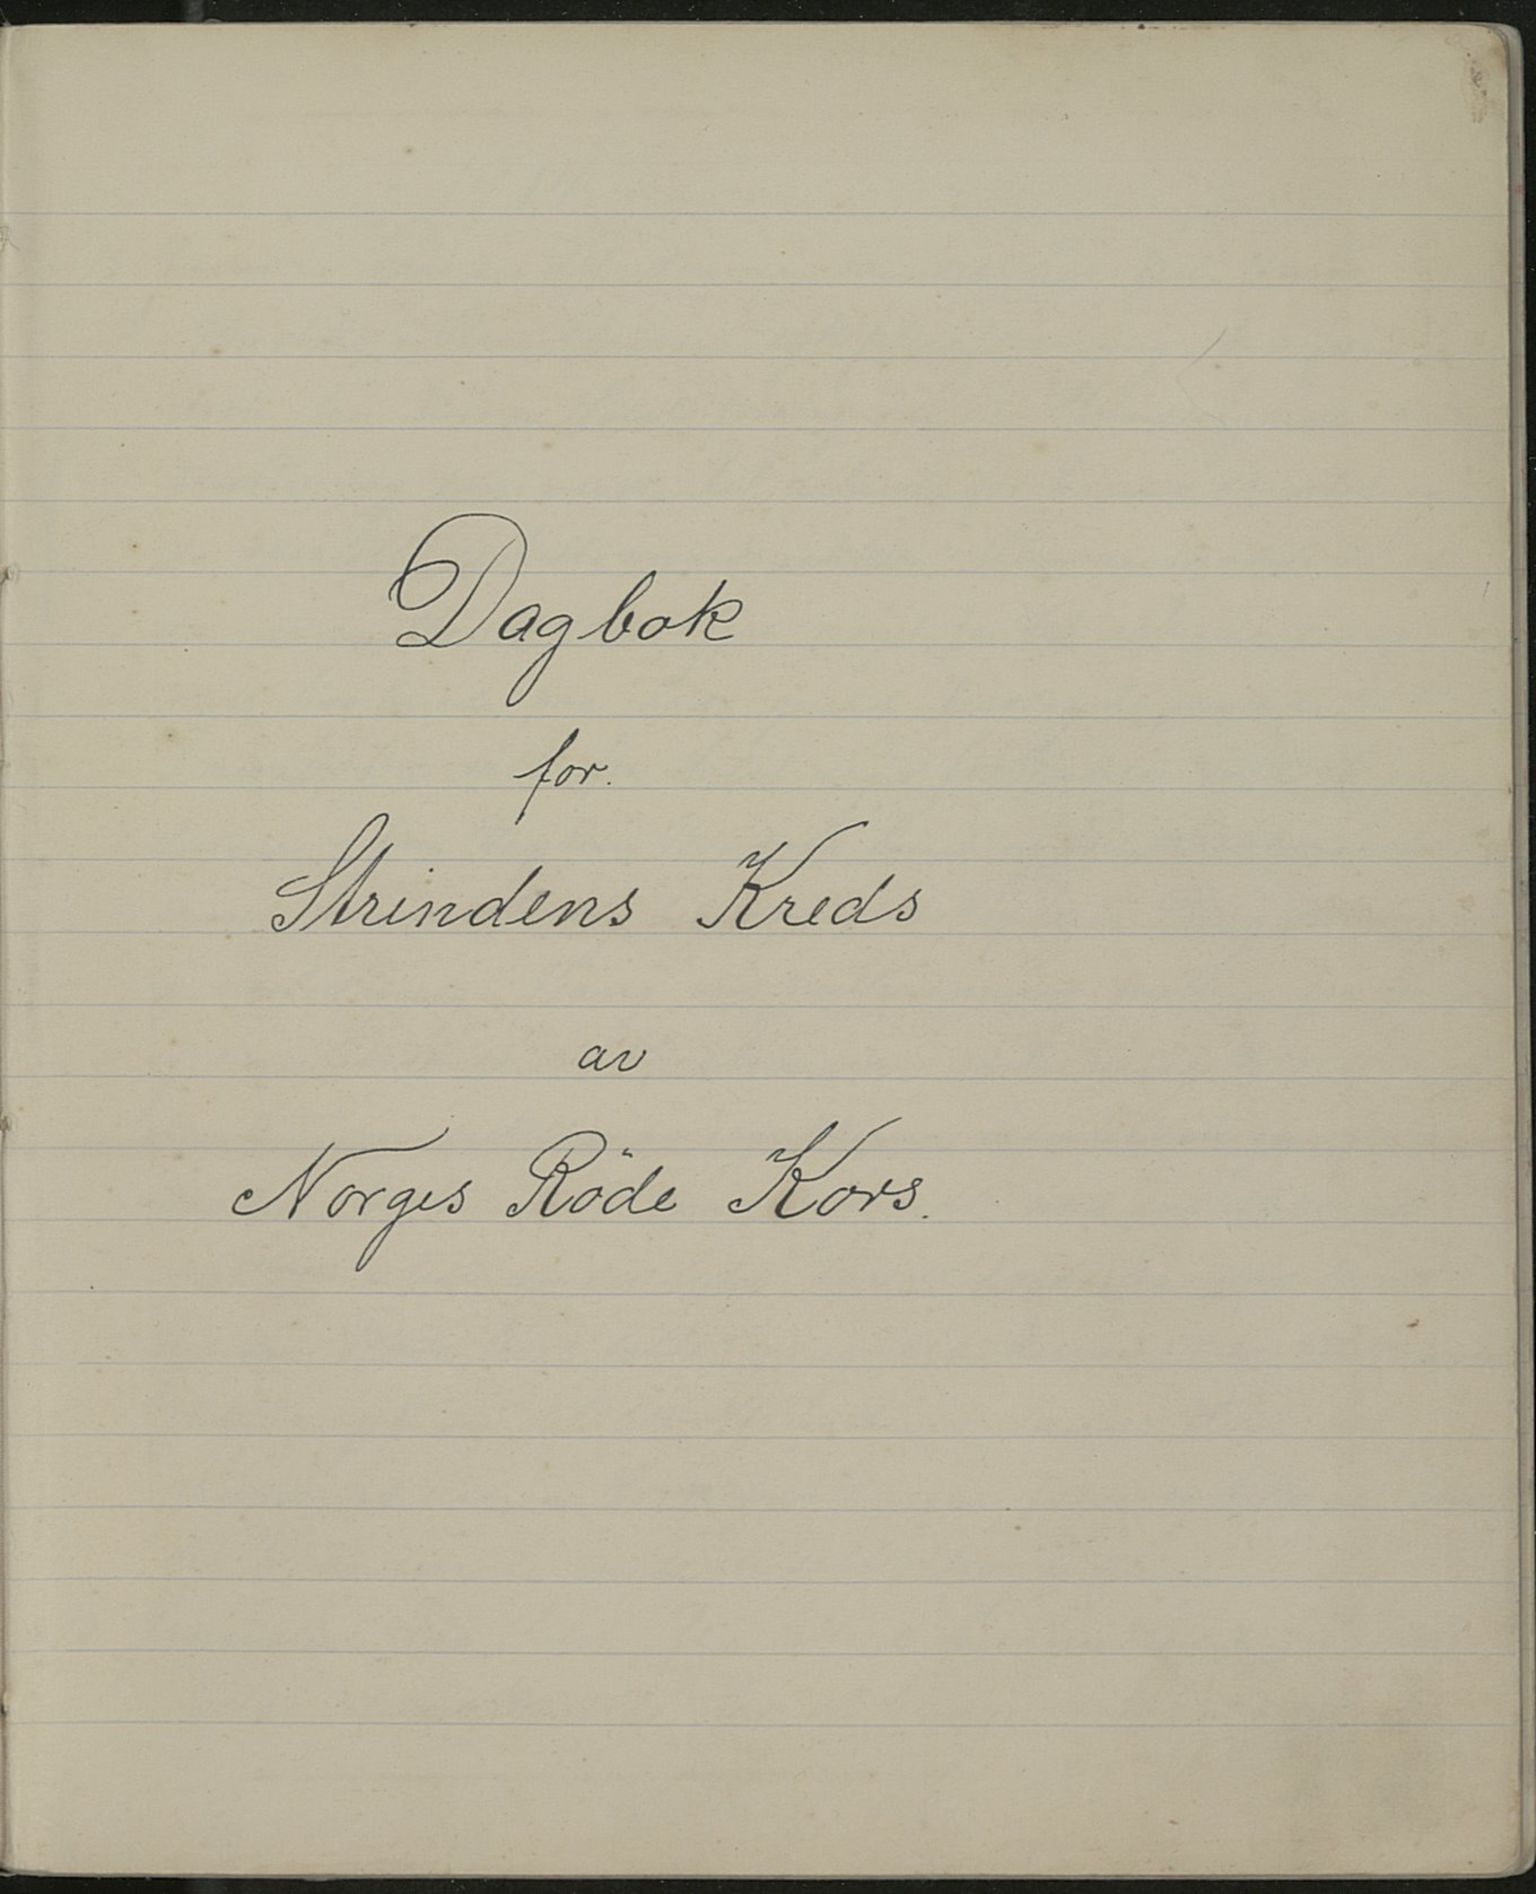 Dagbok
for.
Strindens Kreds
av
Norges Röde Kors.